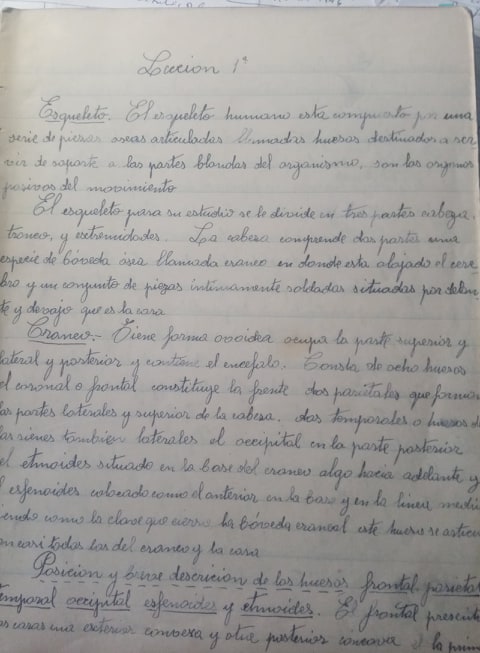 Leccion 1ª
Esqueleto. El esqueleto humano esta compuesto por una
serie de piezas oseas articuladas llamadas huesos destinados a ser
vir de soporte a las partes blandas del organismo, son los organos
pasivos del movimiento
El esqueleto para su estudio se le divide en tres partes cabeza,
tronco, y extremidades. La cabeza comprende dos partes una
especie de bóveda ósea llamada craneo en donde esta alojado el cere
bro y un conjunto de piezas intimamente soldadas situadas por delan
te y devajo que es la cara
Craneo.- Tiene forma ovoidea ocupa la parte superior y
lateral y posterior y contiene el encefalo. Consta de ocho huesos
el coronal o frontal constituye la frente dos parietales que forman
las partes laterales y superior de la cabeza. dos temporales o huesos de
las sienes tambien laterales el occipital en la parte posterior
el etmoides situado en la base del craneo algo hacia adelante y
el esfenoides colocado como el anterior en la base y en la linea media
siendo como la clave que cierra la bóveda craneal este hueso se articu
con casi todos los del craneo y la cara
Posicion y breve descricion de los huesos frontal parietal
temporal occipital esfenoides y etmoides. El frontal presenta
dos caras una exterior convexa y otra posterior concava la prim